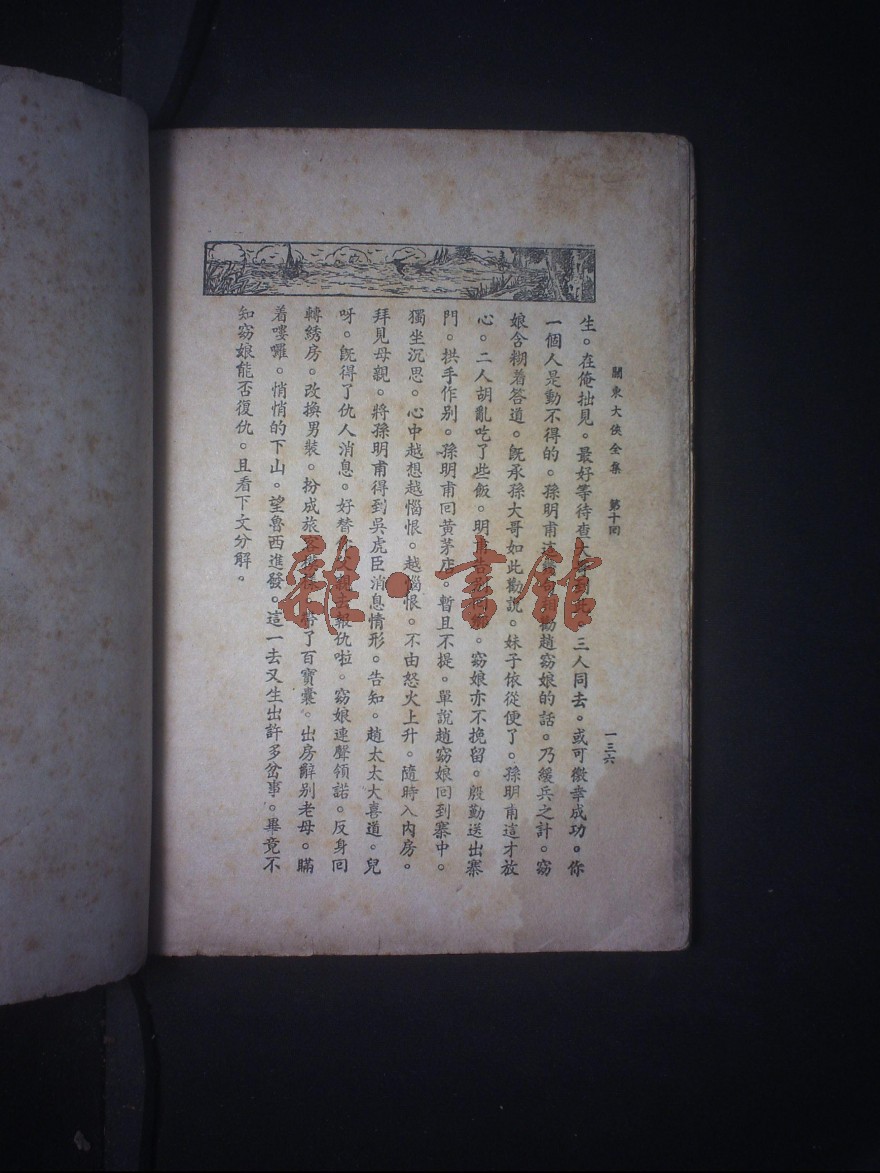 關東大俠全集　第十回
一三六
生。在俺拙見。最好等待查三人同去。或可徼幸成功。你
一個人是動不得的。孫明甫這勸趙窈娘的話。乃緩兵之計。窈
娘含糊着答道。旣承孫大哥如此勸說。妹子依從便了。孫明甫這才放
心。二人胡亂吃了些飯。明甫告別窈娘亦不挽留。殷勤送出寨
門。拱手作別。孫明甫回黃茅店。暫且不提。單說趙窈娘回到寨中。
獨坐沉思。心中越想越惱恨。越惱恨。不由怒火上升。隨時入內房。
拜見母親。將孫明甫得到吳虎臣消息情形。告知。趙太太大喜道。兒
呀。旣得了仇人消息。好替父親去報仇啦。窈娘連聲領諾。反身回
轉綉房。改換男裝。扮成旅客帶了百寶囊。出房辭別老母。瞞
着嘍囉。悄悄的下山。望魯西進發。這一去又生出許多岔事。畢竟不
知窈娘能否復仇。且看下文分解。
雜·書館